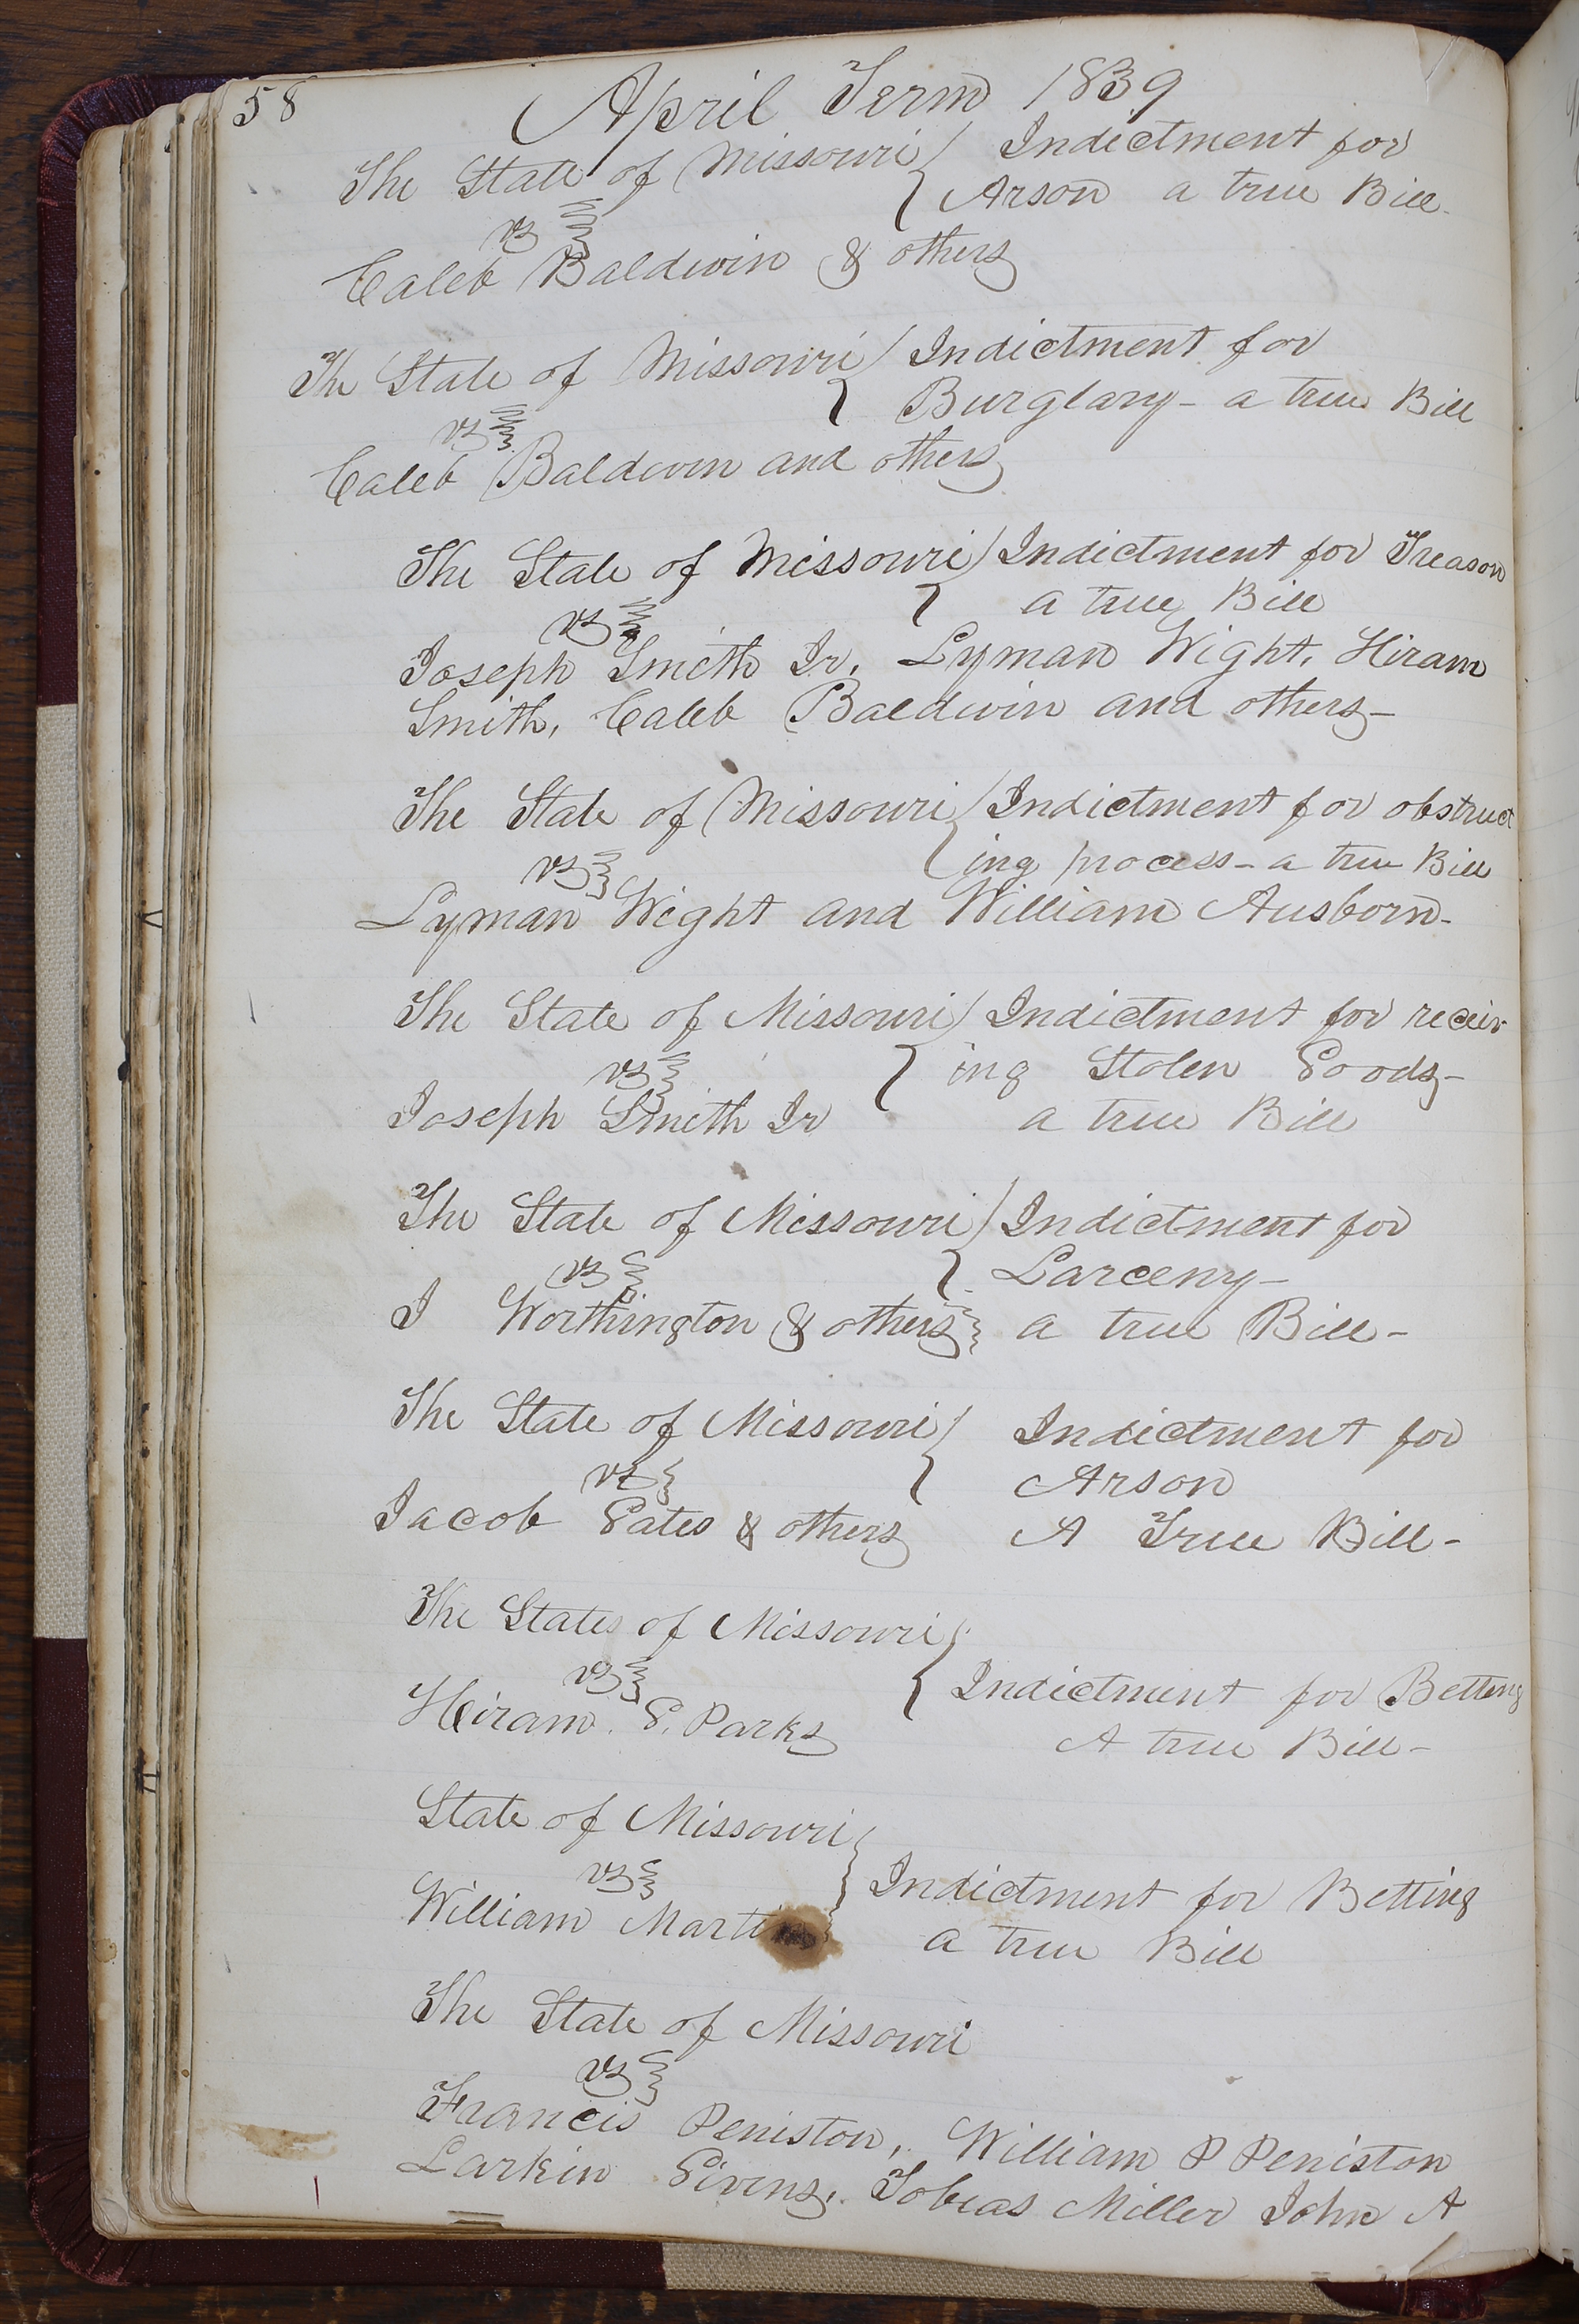 58
April Term 1839
The State of Missouri Indictment for
Arson a true Bill.
vs
Caleb Baldwin & others
The State of Missouri Indictment for
Burglary - a true Bill
vs
Caleb Baldwin and others
The State of Missouri Indictment for Treason
a true Bill
vs
Joseph Smith Jr. Lyman Wight, Hiram
Smith, Caleb Baldwin and others -
The State of Missouri Indictment for obstruct
vs ing process - a true Bill
Lyman Wight and William Ausborn -
The State of Missouri Indictment for receiv
vs ing Stolen Goods -
Joseph Smith Jr a true Bill
The State of Missouri Indictment for
vs Larceny -
J Worthington & others a true Bill -
The State of Missouri Indictment for
vs Arson
Jacob Gates & others A True Bill -
The States of Missouri
vs Indictment for Betting
Hiram. G. Parks A true Bill -
State of Missouri
vs Indictment for Betting
William a true Bill
The State of Missouri
vs
Francis Peniston, William P Peniston
Larkin Givens, Tobias Miller John A